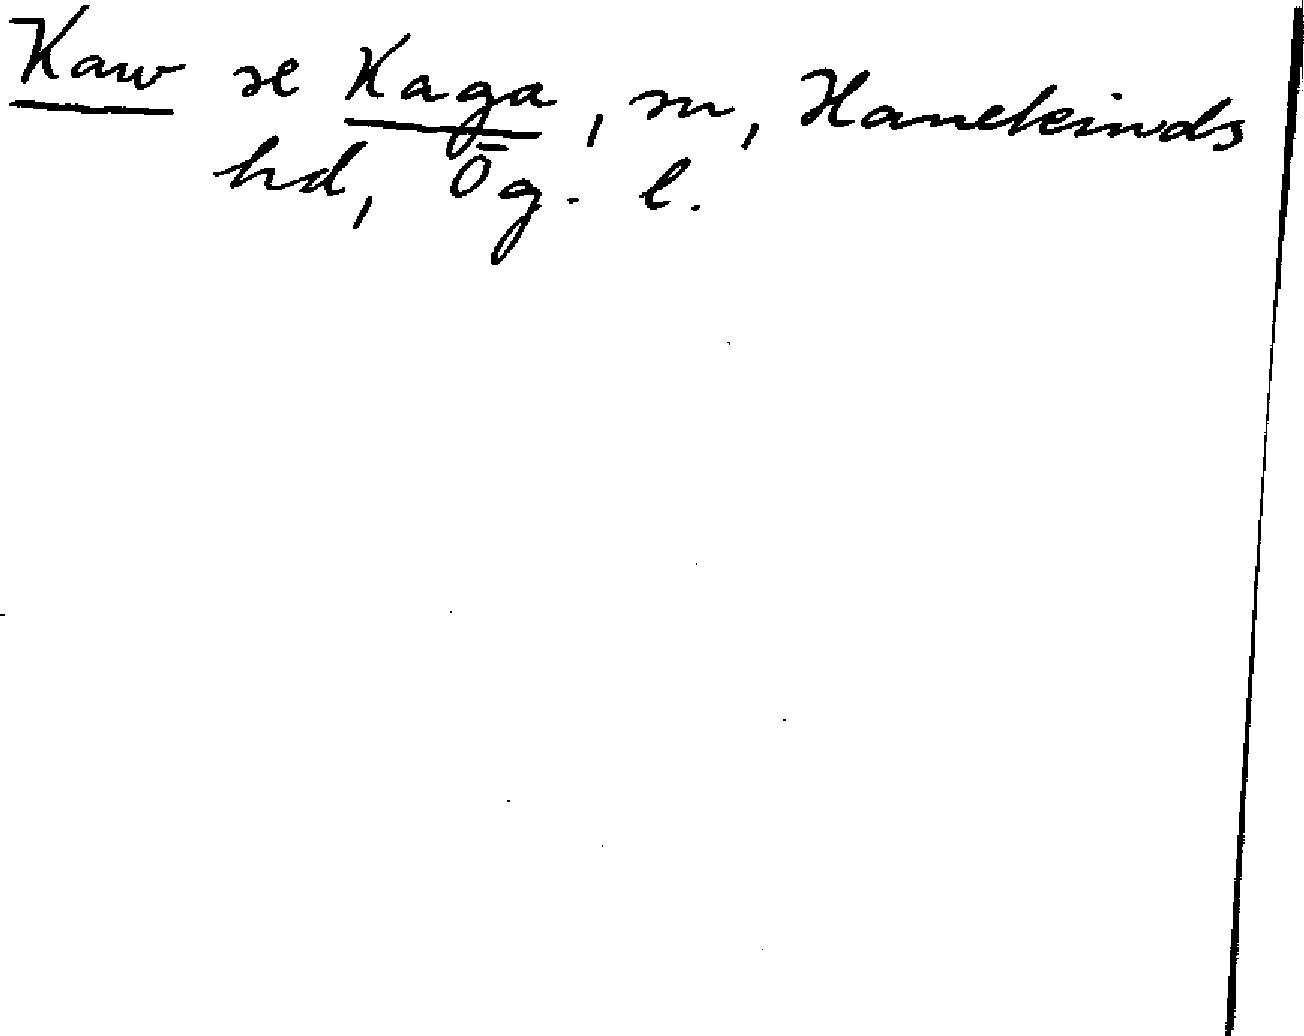 Kaw se Kaga, sn, Hanekinds
hd, Ög. l.